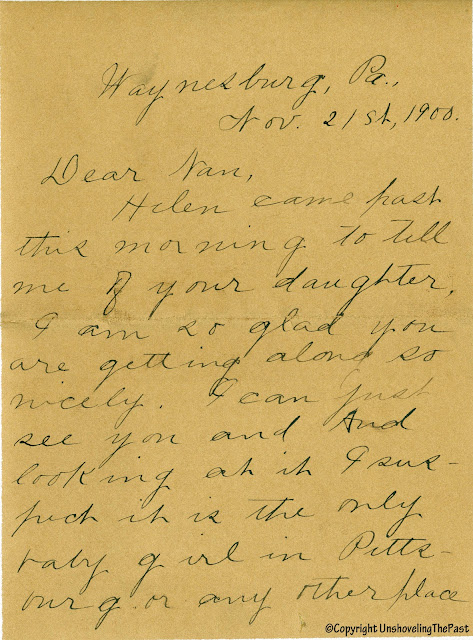 Waynesburg, Pa.,
Nov. 21st, 1900.
Dear Nan,
Helen came past
this morning to tell
me of your daughter,
I am so glad you
are getting along so
nicely. I can just
see you and And
looking at it I sus-
pect it is the only
baby girl in Pitts-
burg or any other place
©Copyright UnshovelingThePast